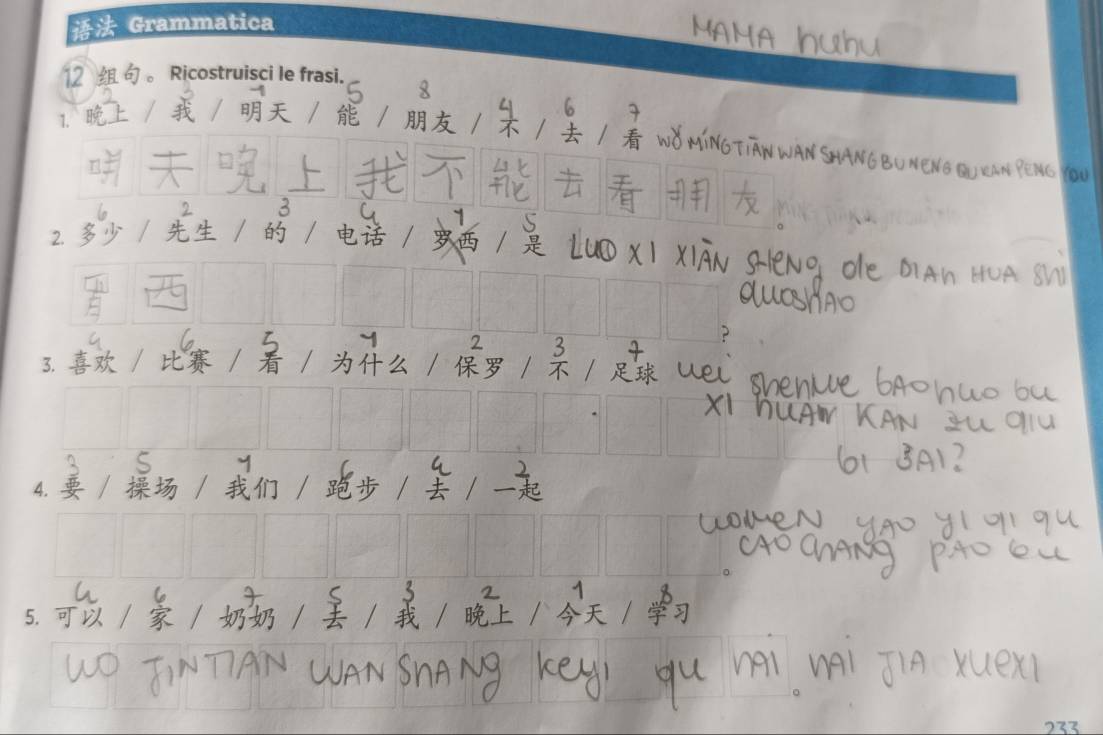 语法 Grammatica
MAMA huhu
12 组句。Ricostruisci le frasi.
2 3 1 5 8 4 6 7
1. 晚上 / 我 / 明天 / 能 / 朋友 / 不 / 去 / 看 WǑ MÍNGTIĀN WAN SHANG BU NENG QU KAN PENG YOU
明天晚上我不能去看朋友。
6 2 3 4 1 5
2. 多少 / 先生 / 的 / 电话 / 罗西 / 是 LUO XI XIĀN SHENG de DIAN HUA Shi
duoshAO
罗西 ?
4 6 5 1 2 3 7
3. 喜欢 / 比赛 / 看 / 为什么 / 保罗 / 不 / 足球 wei shenme bAOhuo bu
XI HUAN KAN zu qiu
bi SAI?
3 5 1 6 4 2
4. 要 / 操场 / 我们 / 跑步 / 去 / 一起
women YAO YI qi qu
CAO ChANG PAO bu
。
4 6 7 5 3 2 1 8
5. 可以 / 家 / 奶奶 / 去 / 我 / 晚上 / 今天 / 学习
WO JINTIAN WAN ShANg keyi qu NAi NAi JIA xuexi
。
233